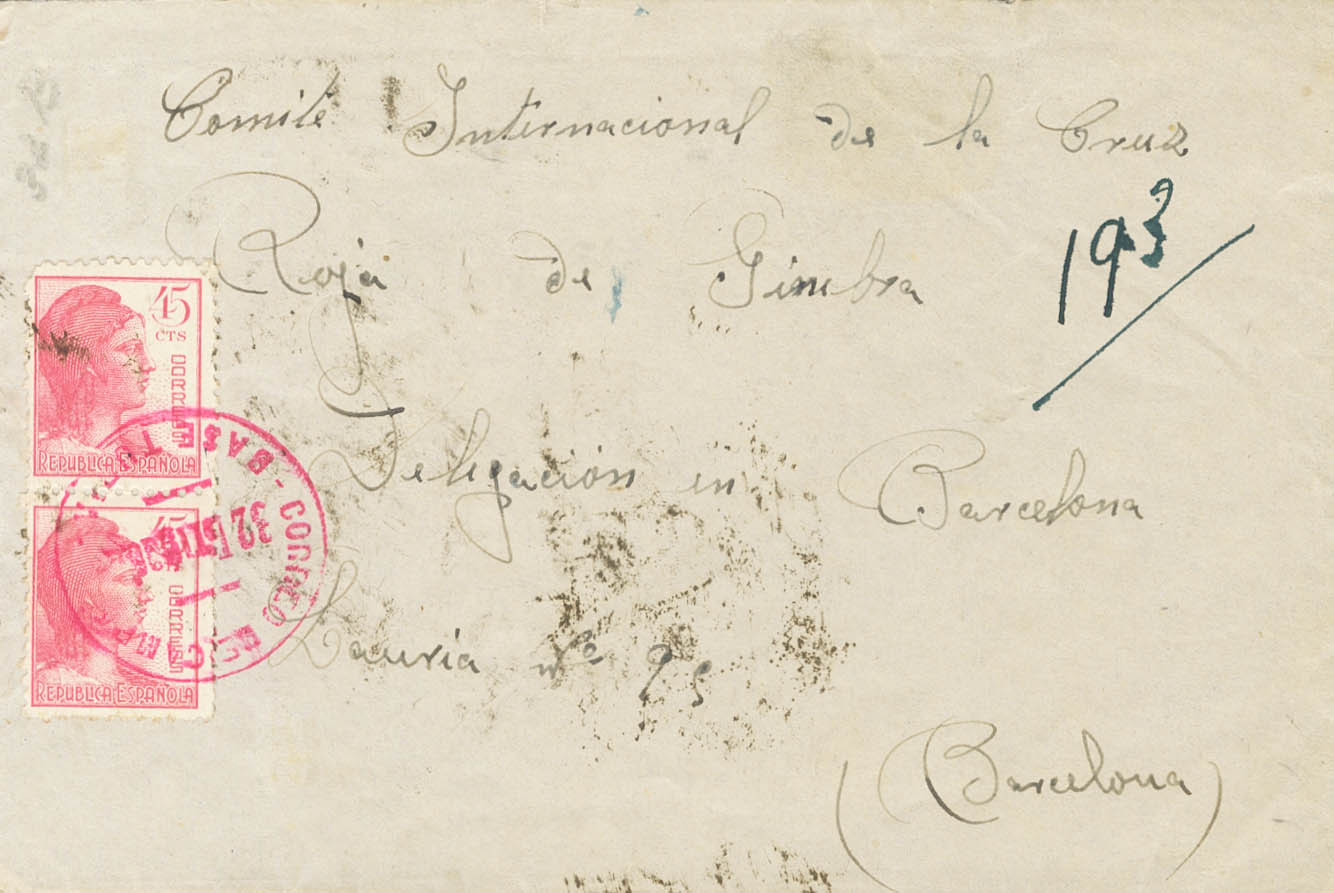 Comité Internacional de la Cruz
Roja de Ginebra
193
Delegación en Barcelona
Lauria nº 95
(Barcelona)
45
CTS
CORREOS
REPUBLICA ESPAÑOLA
45
CORREOS
REPUBLICA ESPAÑOLA
BASE - CORREO